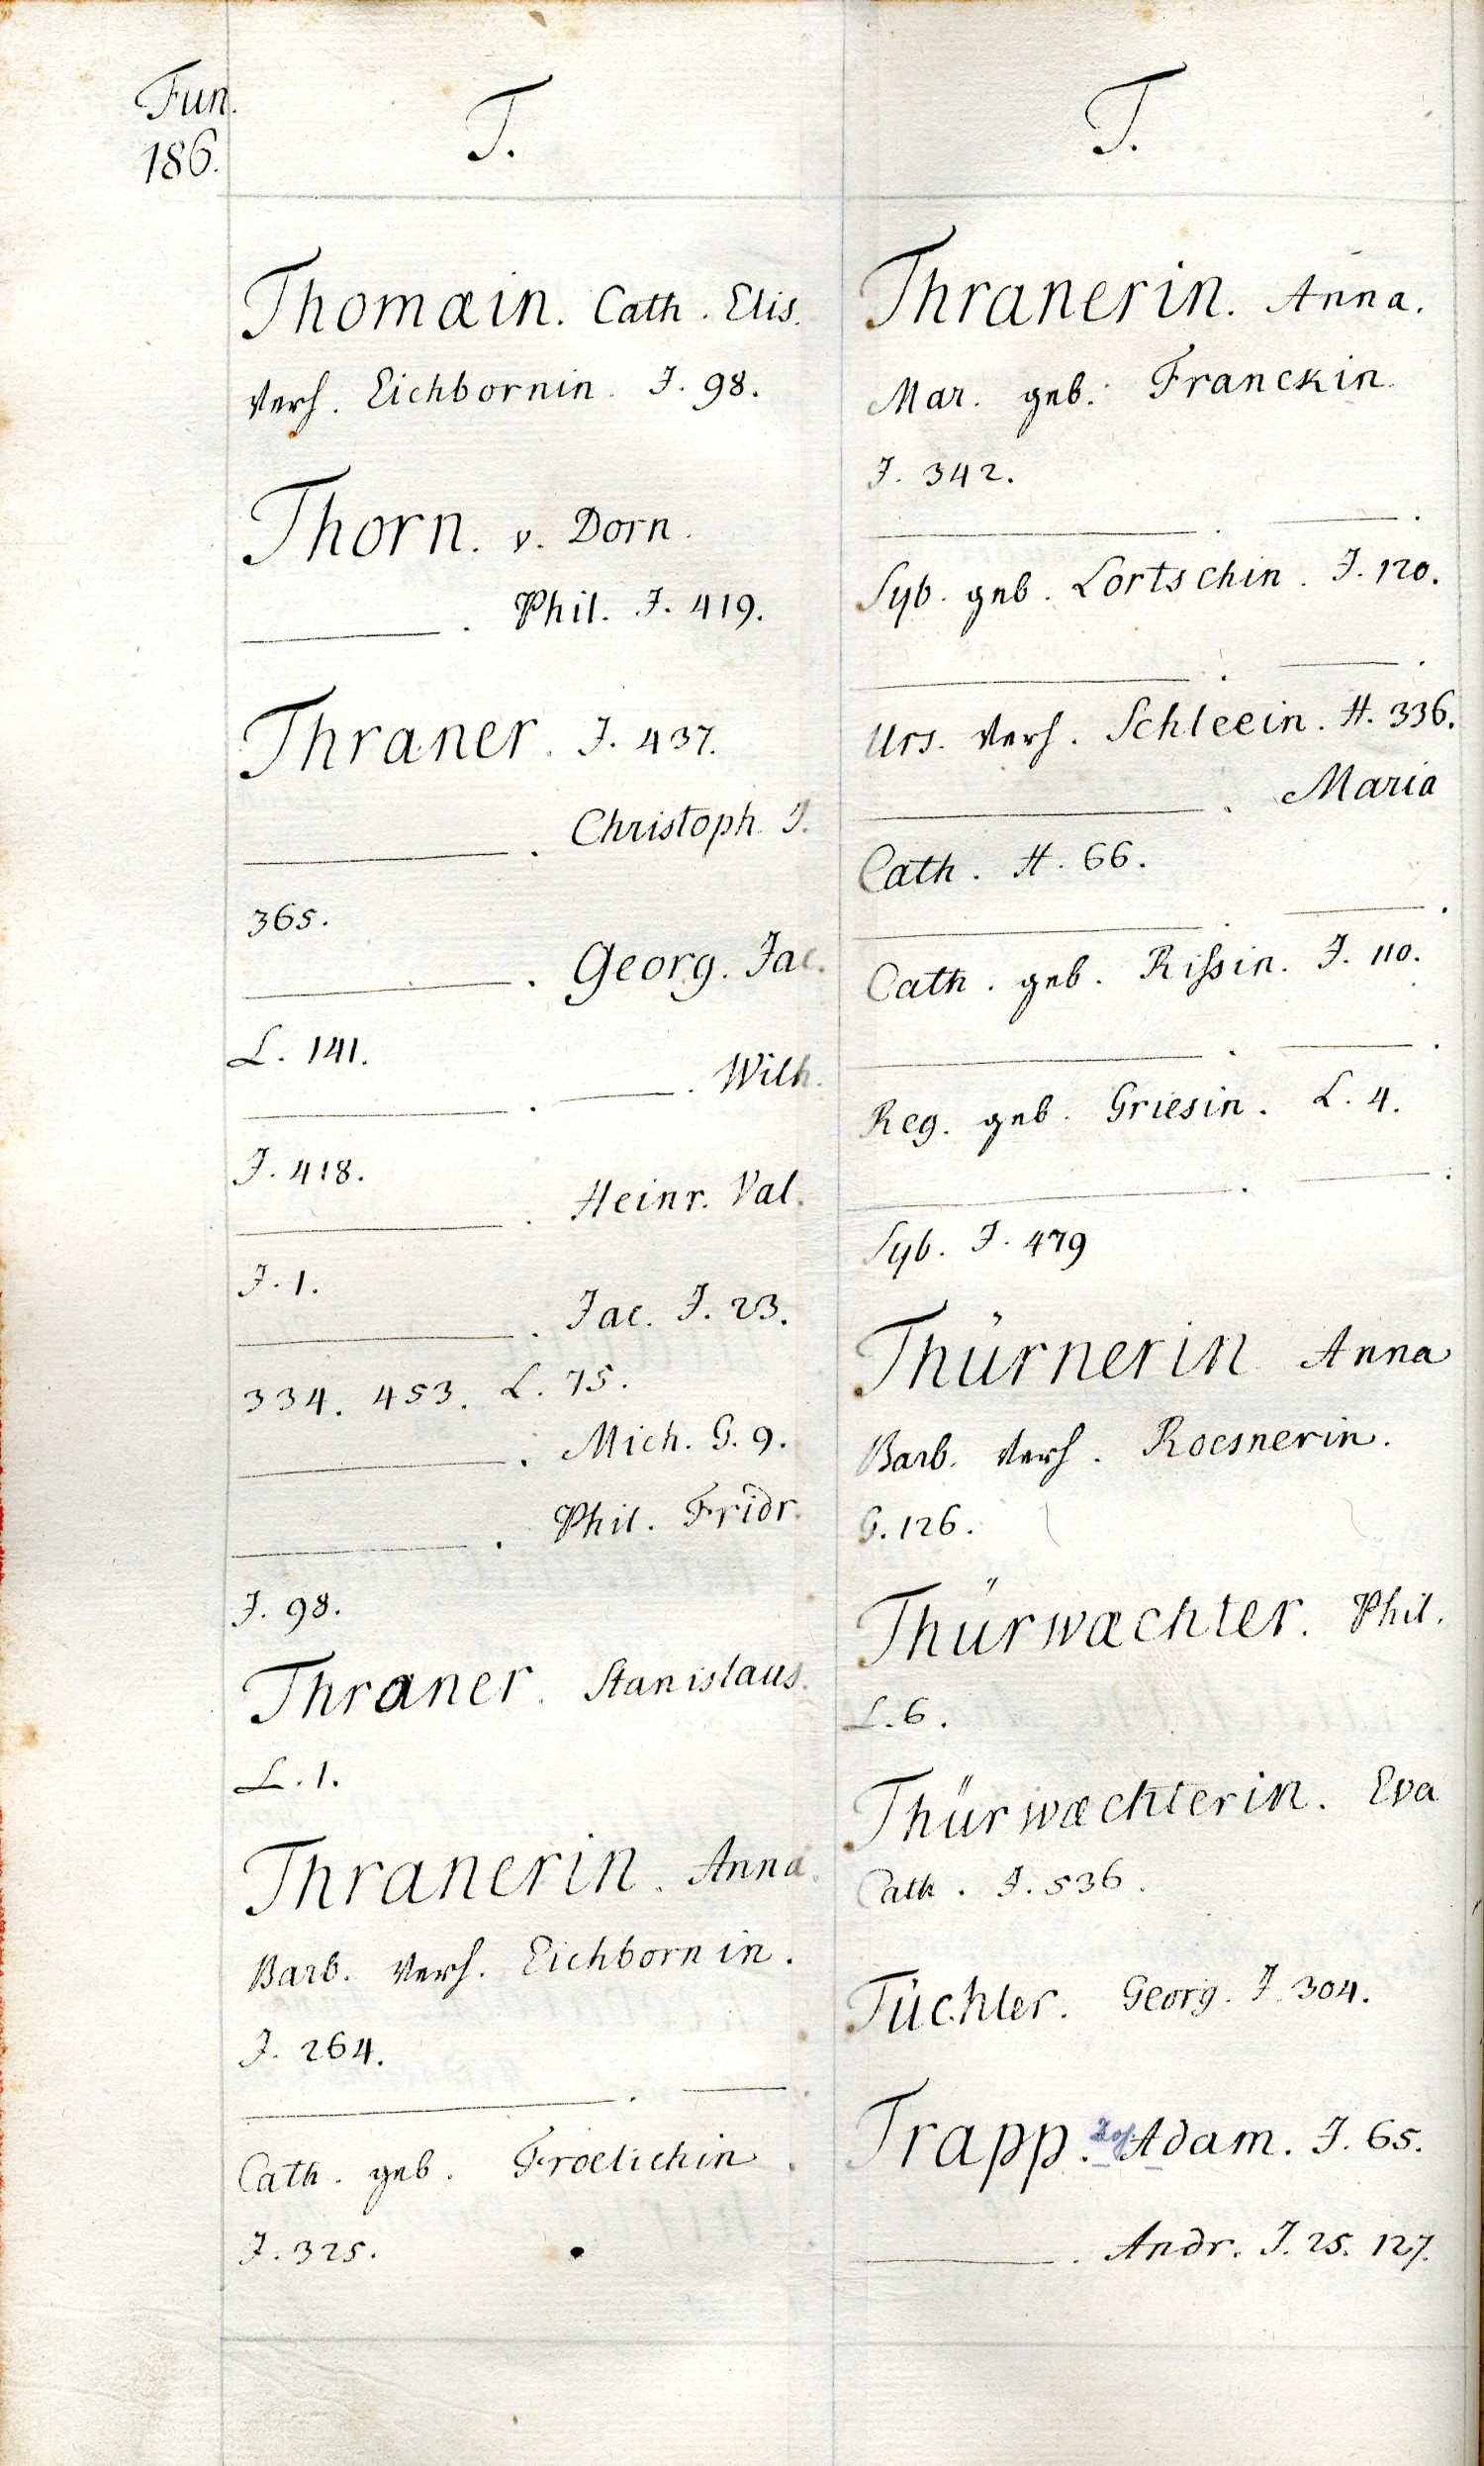 Fun.
186.
T.
Thomæin. Cath. Elis.
verh. Eichbornin. J. 98.
Thorn. v. Dorn.
———. Phil. J. 419.
Thraner. J. 437.
———. Christoph. J.
365.
———. Georg. Jac.
L. 141.
———. ———. Wilh.
J. 418.
———. Heinr. Val.
J. 1.
———. Jac. J. 23.
334. 453. L. 75.
———. Mich. G. 9.
———. Phil. Fridr.
J. 98.
Thraner. Stanislaus.
L. 1.
Thranerin. Anna.
Barb. verh. Eichbornin.
J. 264.
———. ———.
Cath. geb. Froelichin.
J. 325.
T.
Thranerin. Anna.
Mar. geb. Franckin.
J. 342.
———. ———.
Syb. geb. Lortschin. J. 120.
———. ———.
Urs. verh. Schleein. H. 336.
———. Maria
Cath. H. 66.
———. ———.
Cath. geb. Rißin. J. 110.
———. ———.
Reg. geb. Griesin. L. 4.
———. ———.
Syb. J. 479
Thürnerin Anna
Barb. verh. Roesnerin.
G. 126.
Thürwæchter. Phil.
L. 6.
Thürwæchterin. Eva
Cath. J. 536.
Tüchler. Georg. J. 304.
Trapp. Adam. J. 65.
———. Andr. J. 25. 127.